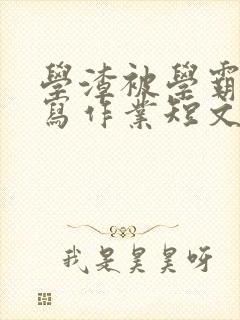 學渣被學霸
寫作業短文
我是昊昊呀